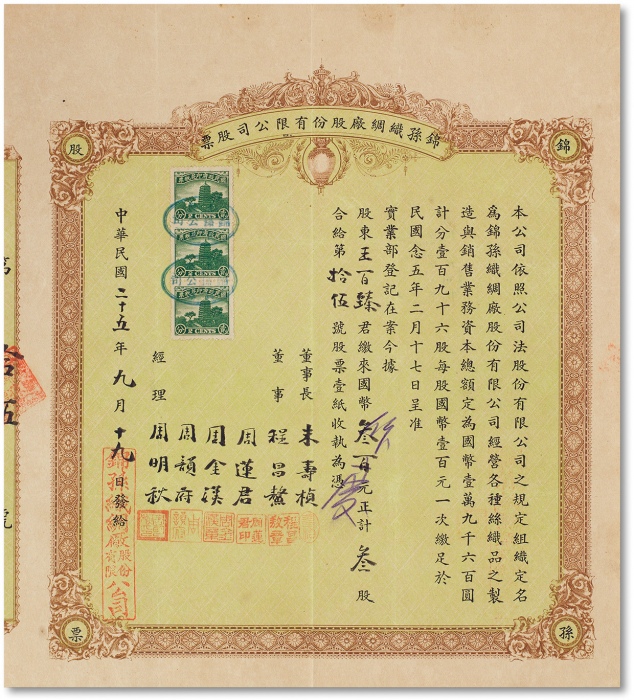 錦孫織綢廠股份有限公司股票
錦
孫
股
票
本公司依照公司法股份有限公司之規定組織定名
為錦孫織綢廠股份有限公司經營各種絲織品之製
造與銷售業務資本總額定為國幣壹萬九千六百圓
計分壹百九十六股每股國幣壹百元一次繳足於
民國念五年二月十七日呈准
實業部登記在案今據
股東王百臻君繳來國幣叁百元正計叁股
合給第拾伍號股票壹紙收執為憑
董事長 朱壽楨
董事 程昌鰲
周蓮君
周金漢
周韻府
經理 周明秋
中華民國二十五年九月十九日發給
錦孫織綢廠股份有限公司
2 CENTS
2 CENTS
2 CENTS
拾伍
號